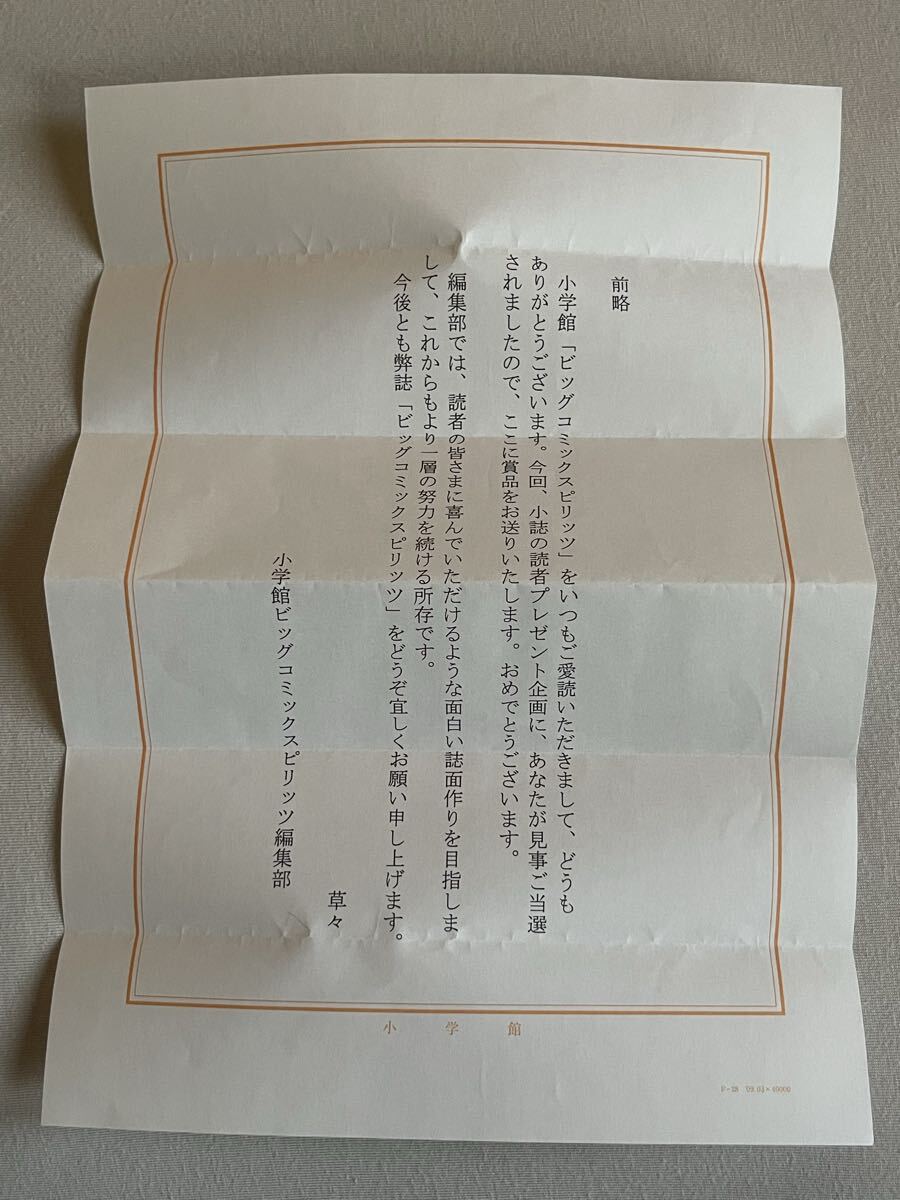 前略
小学館「ビッグコミックスピリッツ」をいつもご愛読いただきまして、どうも
ありがとうございます。今回、小誌の読者プレゼント企画に、あなたが見事ご当選
されましたので、ここに賞品をお送りいたします。おめでとうございます。
編集部では、読者の皆さまに喜んでいただけるような面白い誌面作りを目指しま
して、これからもより一層の努力を続ける所存です。
今後とも弊誌「ビッグコミックスピリッツ」をどうぞ宜しくお願い申し上げます。
草々
小学館ビッグコミックスピリッツ編集部
小学館